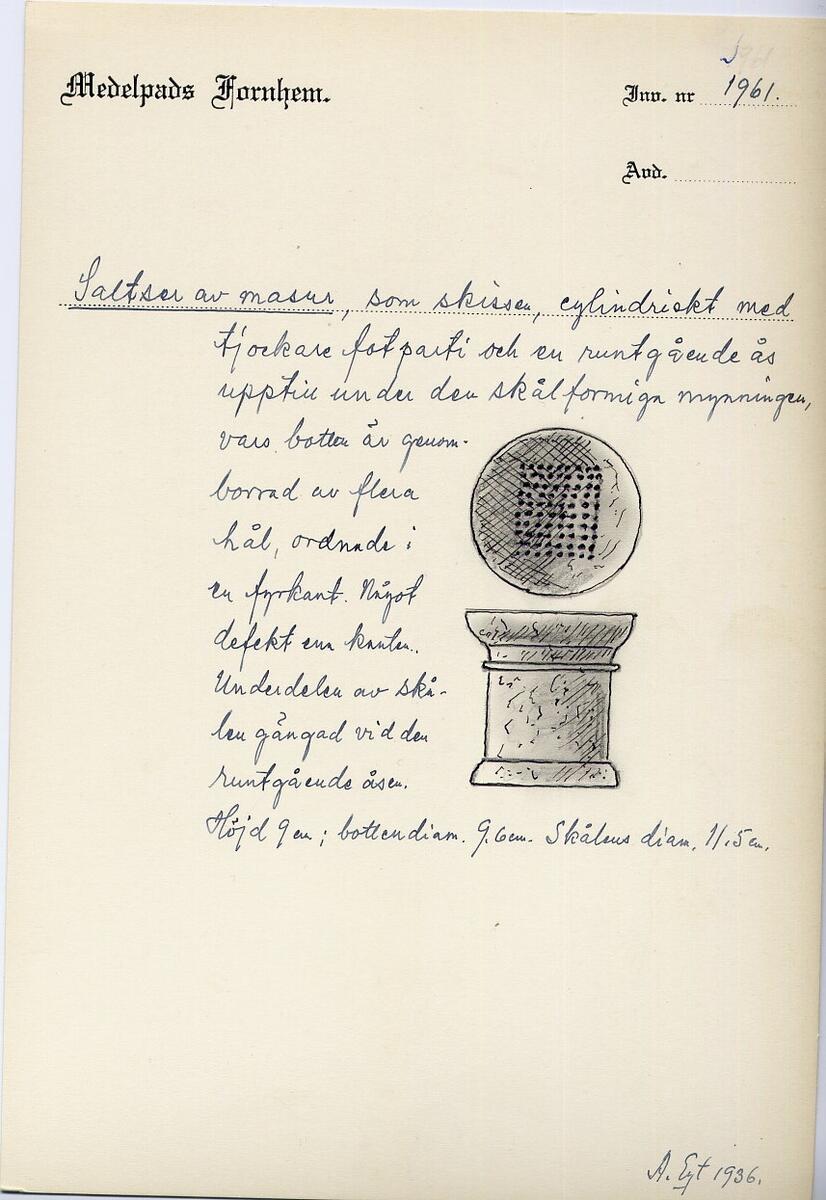 Medelpads Fornhem.
Inv. nr 1961.
Avd.
Saltser av masur, som skissen, cylindriskt med
tjockare fotparti och en runtgående ås
upptill under den skålformiga mynningen,
vars botten är genom-
borrad av flera
hål, ordnade i
en fyrkant. Något
defekt om kanten.
Underdelen av skå-
len gängad vid den
runtgående åsen.
Höjd 9 cm; bottendiam. 9,6 cm. Skålens diam. 11,5 cm.
A. 1936.